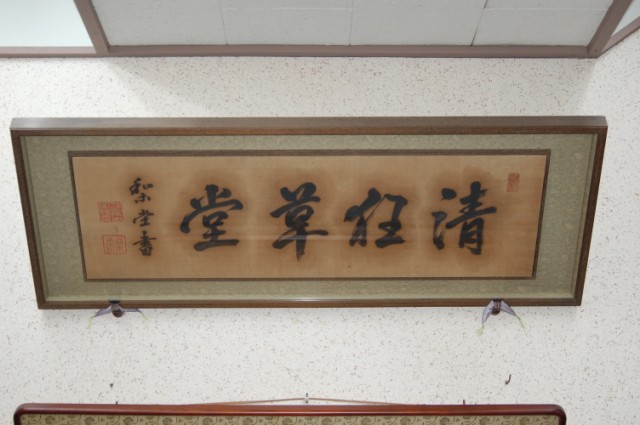 清任草堂
梨堂書